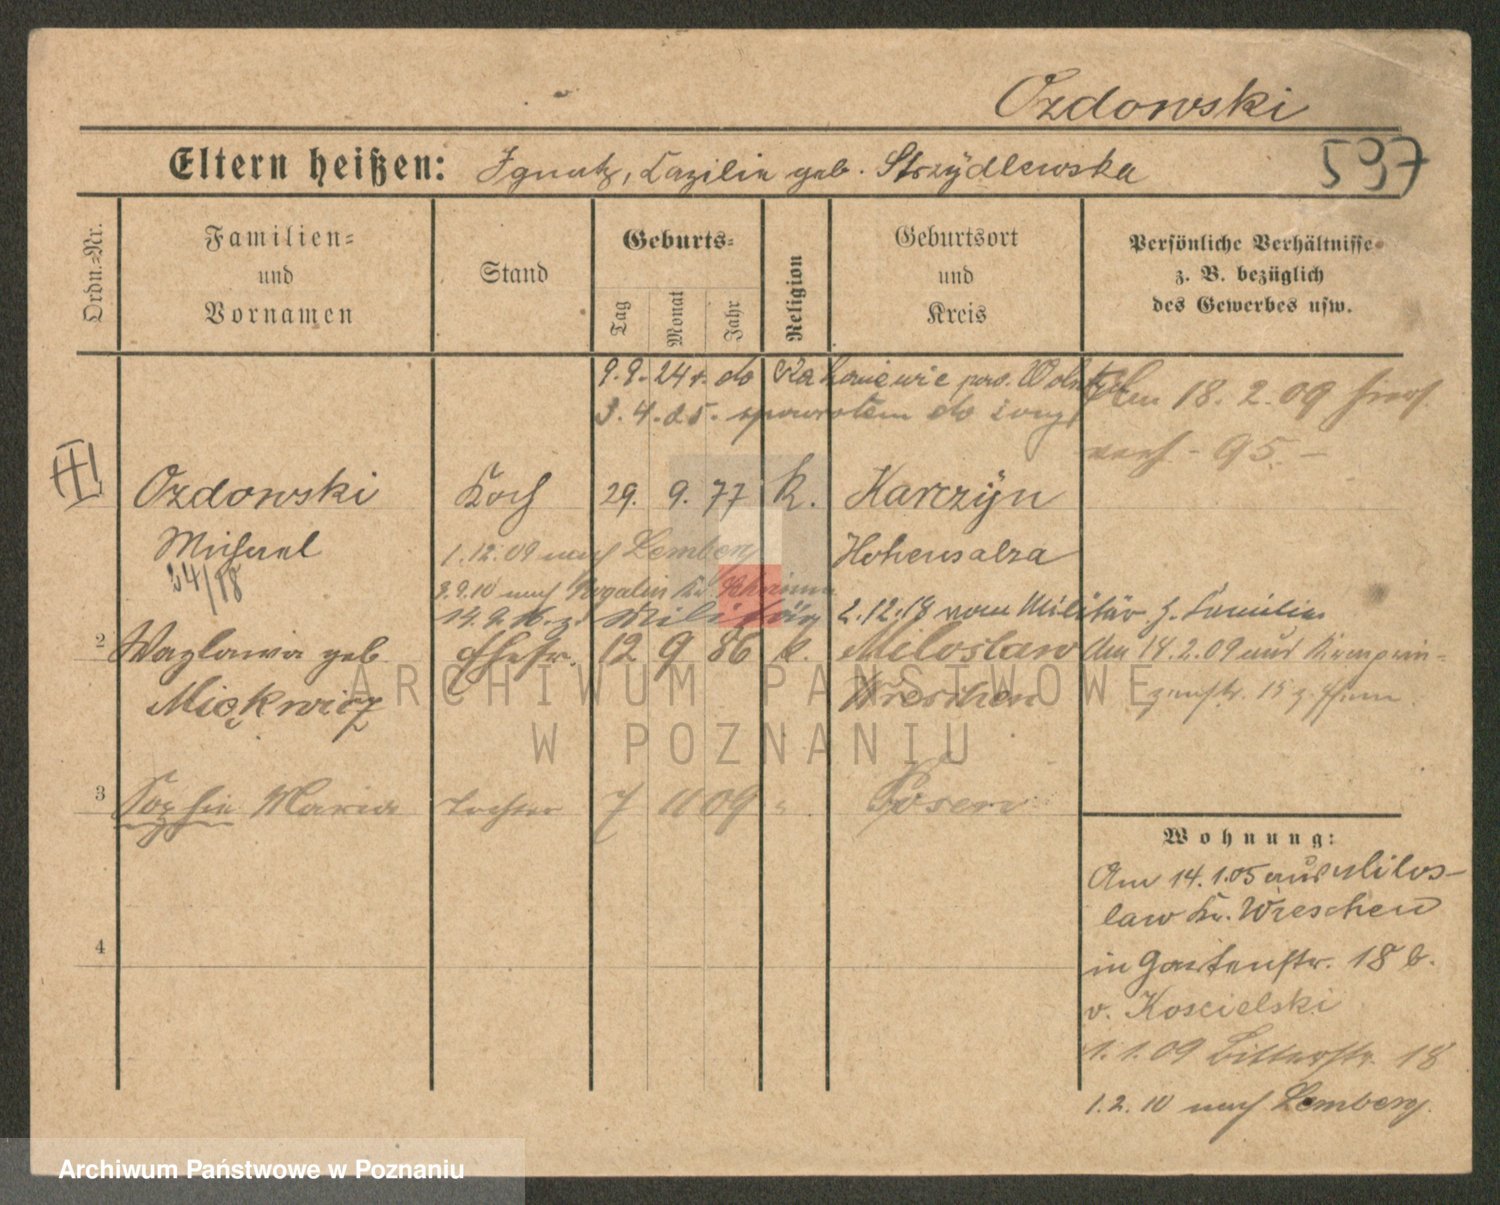 Ozdowski
Eltern heißen: Ignatz, Cäzilie geb. Strzÿdlewska
597
Ordn.-Nr.
Familien-
und
Vornamen
Stand
Geburts-
Tag
Monat
Jahr
Religion
Geburtsort
und
Kreis
Persönliche Verhältnisse
z. B. bezüglich
des Gewerbes usw.
9.9.24 r. do Rakoniewic pow.
3.4.25. spowrotem do żony
Am 18.2.09
95.-
Ozdowski
Koch
29. 9. 77
k.
Karczÿn
Michael
1.12.09 nach Lemberg
Hohensalza
34/18
9.9.10 nach Rogalin Kr. Schrimm
Militär
2.12.18 vom Militär z. Familie
2
Wazlawa geb
Ehefr.
12 9 86
k.
Miloslaw
Am 18.2.09 aus Kronprin-
Mickwicz
Wreschen
zenstr. 15
3
Sophie Maria
Tochter
7 11 09
"
Posen
Wohnung:
Am 14.1.05 aus Milos-
law Kr. Wreschen
4
in Gartenstr. 18 b.
v. Koscielski
1.1.09 Bitterstr. 18
1.2.10 nach Lemberg.
ARCHIWUM PAŃSTWOWE
W POZNANIU
Archiwum Państwowe w Poznaniu